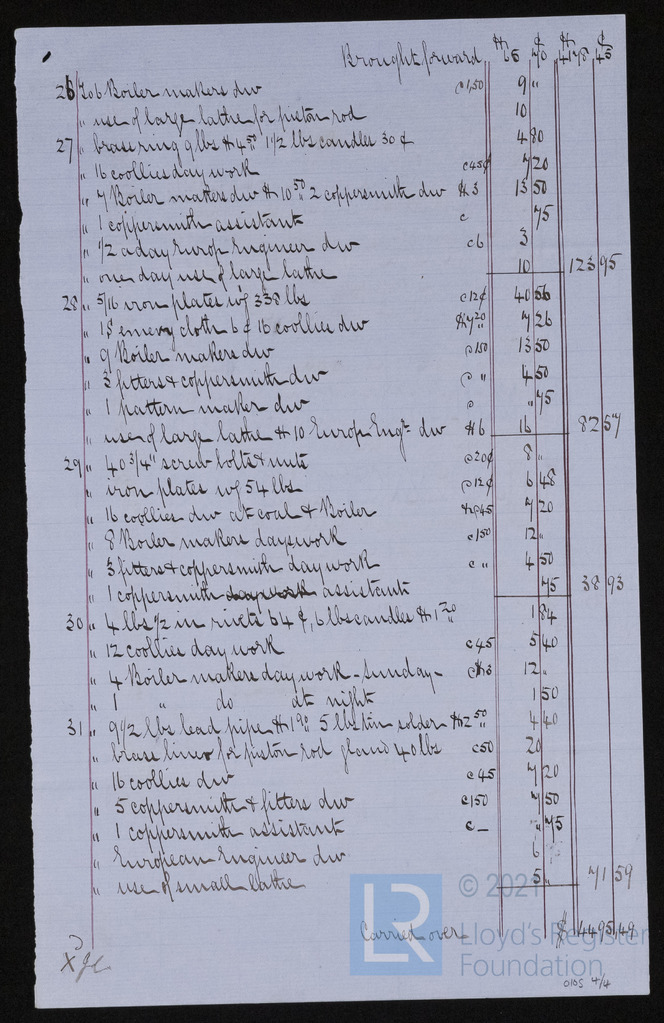 $ ¢ $ ¢
Brought forward 65 70 4178 45
26 " 6 Boiler makers dw @1,50 9 "
" use of large lathe for piston rod 10
27 " brass ring 9 lbs $4.50 1 1/2 lbs candles 30 ¢ 4 80
" 16 coollies day work @45¢ 7 20
" 7 Boiler makers dw $10.50 2 coppersmith dw $3 13 50
" 1 coppersmith assistant @ 75
" 1/2 a day Europ Engineer dw @6 3
" one day use of large lathe 10 123 95
28 " 5/16 iron plates wg 338 lbs @12¢ 40 56
" 1 emery cloth 6 ¢ 16 coollies dw $7.20 7 26
" 9 Boiler makers dw @150 13 50
" 3 fitters & coppersmith dw @ " 4 50
" 1 pattern maker dw @ " 75
" use of large lathe $10 Europ Engr. dw $6 16 82 57
29 " 40 3/4" screw bolts & nuts @20¢ 8 "
" iron plates wg 54 lbs @12¢ 6 48
" 16 coollies dw at coal & Boiler @45 7 20
" 8 Boiler makers dayswork @150 12 "
" 3 fitters & coppersmith daywork @ " 4 50
" 1 coppersmith daywork assistant 75 38 93
30 " 4 lbs 1/2 in rivets 64 ¢, 6 lbs candles $1.20 1 84
" 12 coollies day work @45 5 40
" 4 Boiler makers day work - Sunday - @$3 12 "
" 1 " do at night 1 50
31 " 9 1/2 lbs lead pipe $1.90 5 lbs tin solder $2.50 4 40
" brass liner for piston rod gland 40 lbs @50 20
" 16 coollies dw @45 7 20
" 5 coppersmith & fitters dw @150 7 50
" 1 coppersmith assistant @ — " 75
" European Engineer dw 6
" use of small lathe 5 " 71 59
Carried over $ 4495,49
© 2021
LR
Lloyd's Register
Foundation
0105 4/4